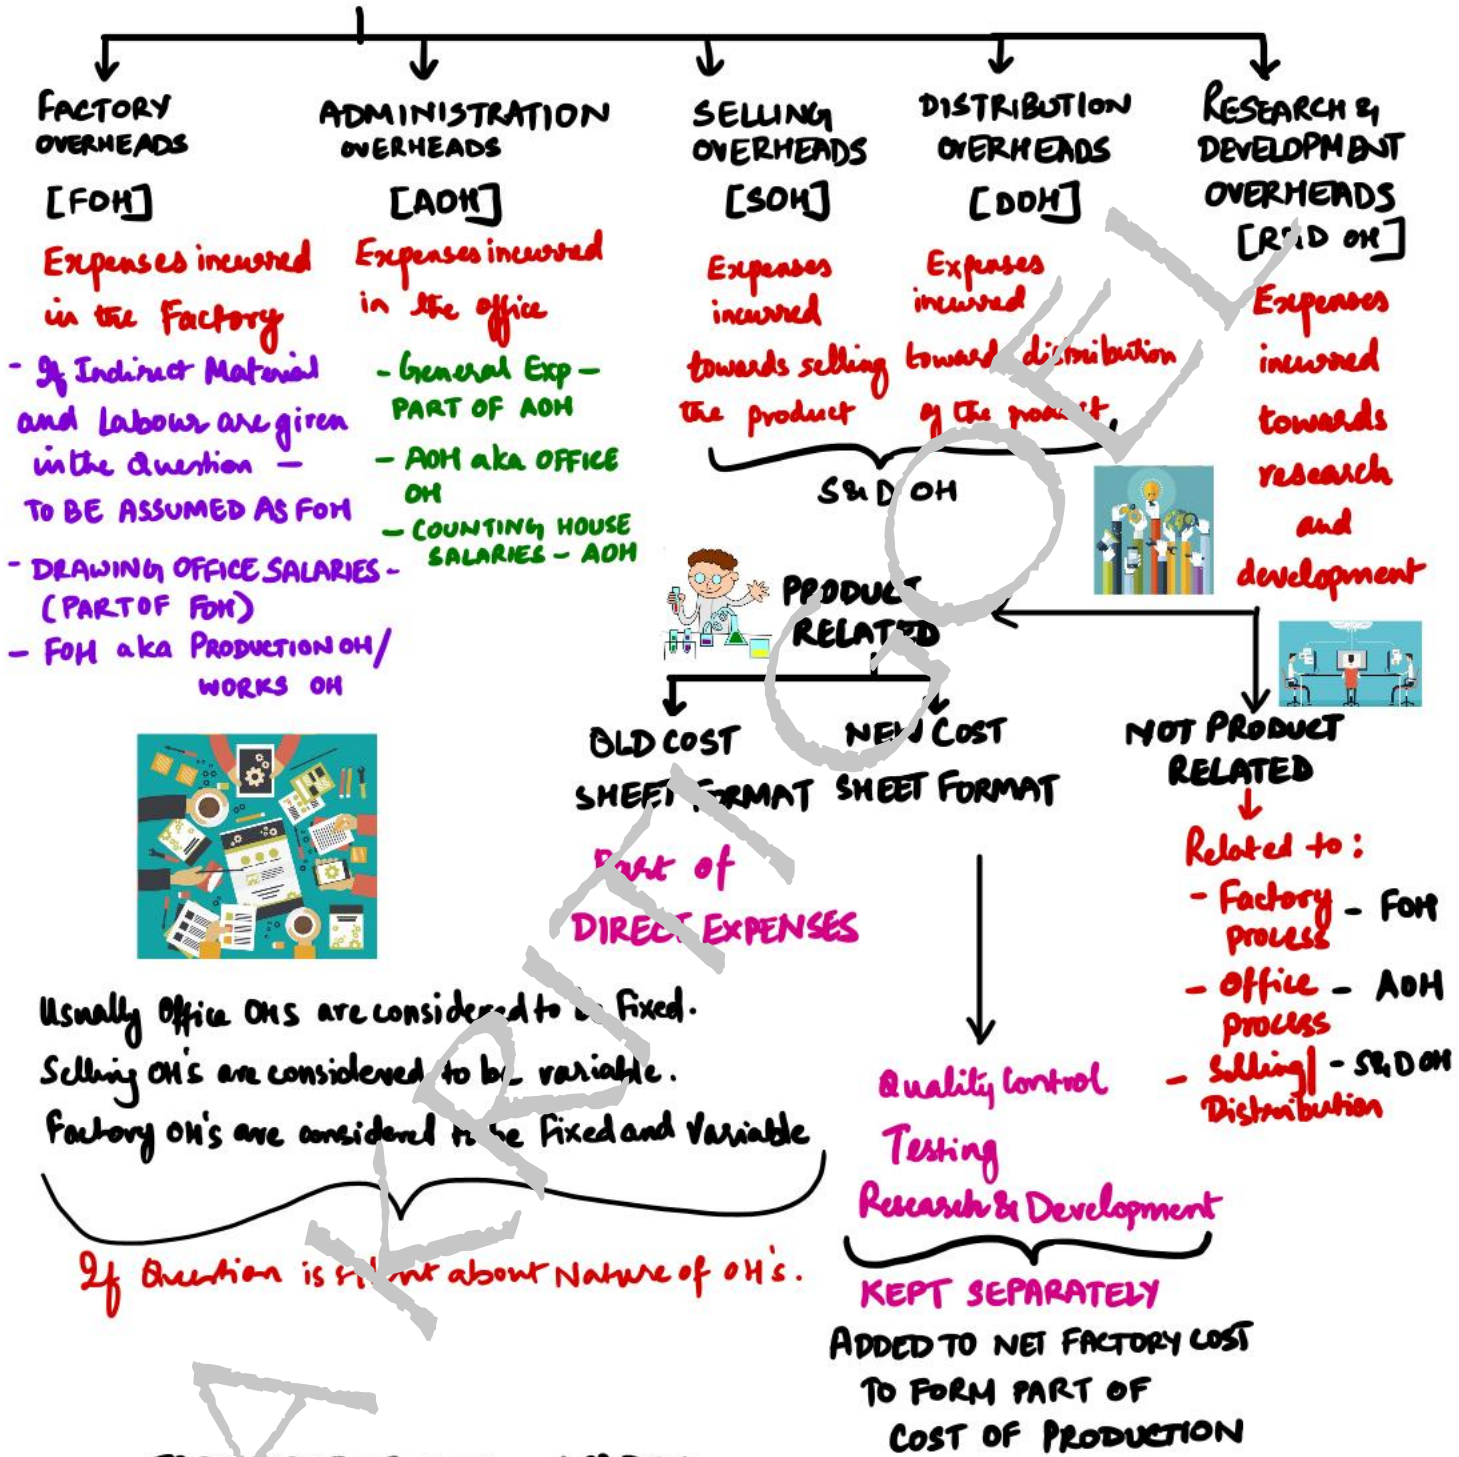 FACTORY
OVERHEADS
[FOH]
Expenses incurred
in the Factory
- If Indirect Material
and Labour are given
in the Question -
TO BE ASSUMED AS FOH
- DRAWING OFFICE SALARIES -
(PART OF FOH)
- FOH aka PRODUCTION OH/
WORKS OH
ADMINISTRATION
OVERHEADS
[AOH]
Expenses incurred
in the office
- General Exp -
PART OF AOH
- AOH aka OFFICE
OH
- COUNTING HOUSE
SALARIES - AOH
SELLING
OVERHEADS
[SOH]
Expenses
incurred
towards selling
the product
DISTRIBUTION
OVERHEADS
[DOH]
Expenses
incurred
toward distribution
of the product
S&D OH
RESEARCH &
DEVELOPMENT
OVERHEADS
[R&D OH]
Expenses
incurred
towards
research
and
development
PRODUCT
RELATED
OLD COST
SHEET FORMAT
Part of
DIRECT EXPENSES
NEW COST
SHEET FORMAT
Quality Control
Testing
Research & Development
KEPT SEPARATELY
ADDED TO NET FACTORY COST
TO FORM PART OF
COST OF PRODUCTION
NOT PRODUCT
RELATED
Related to:
- Factory - FOH
process
- Office - AOH
process
- Selling/ - S&D OH
Distribution
Usually Office OHS are considered to be Fixed.
Selling OH's are considered to be variable.
Factory OH's are considered to be Fixed and Variable
If Question is silent about Nature of OH's.
AKRITI GOEL